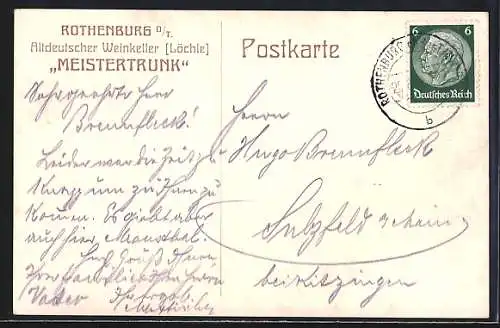 ROTHENBURG O/T.
Altdeutscher Weinkeller [Löchle]
„MEISTERTRUNK“
Postkarte
6 6
Deutsches Reich
ROTHENBURG
b
Sehr geehrter Herr
Brennfleck!
Leider war die Zeit zu
knapp um zu Ihnen zu
kommen. Es giebt aber
auch hier
Herzl. Grüße Ihnen
Ihrer Herrn
Vater Ihr
Herrn
Hugo Brennfleck
Sulzfeld a/Main
bei Kitzingen